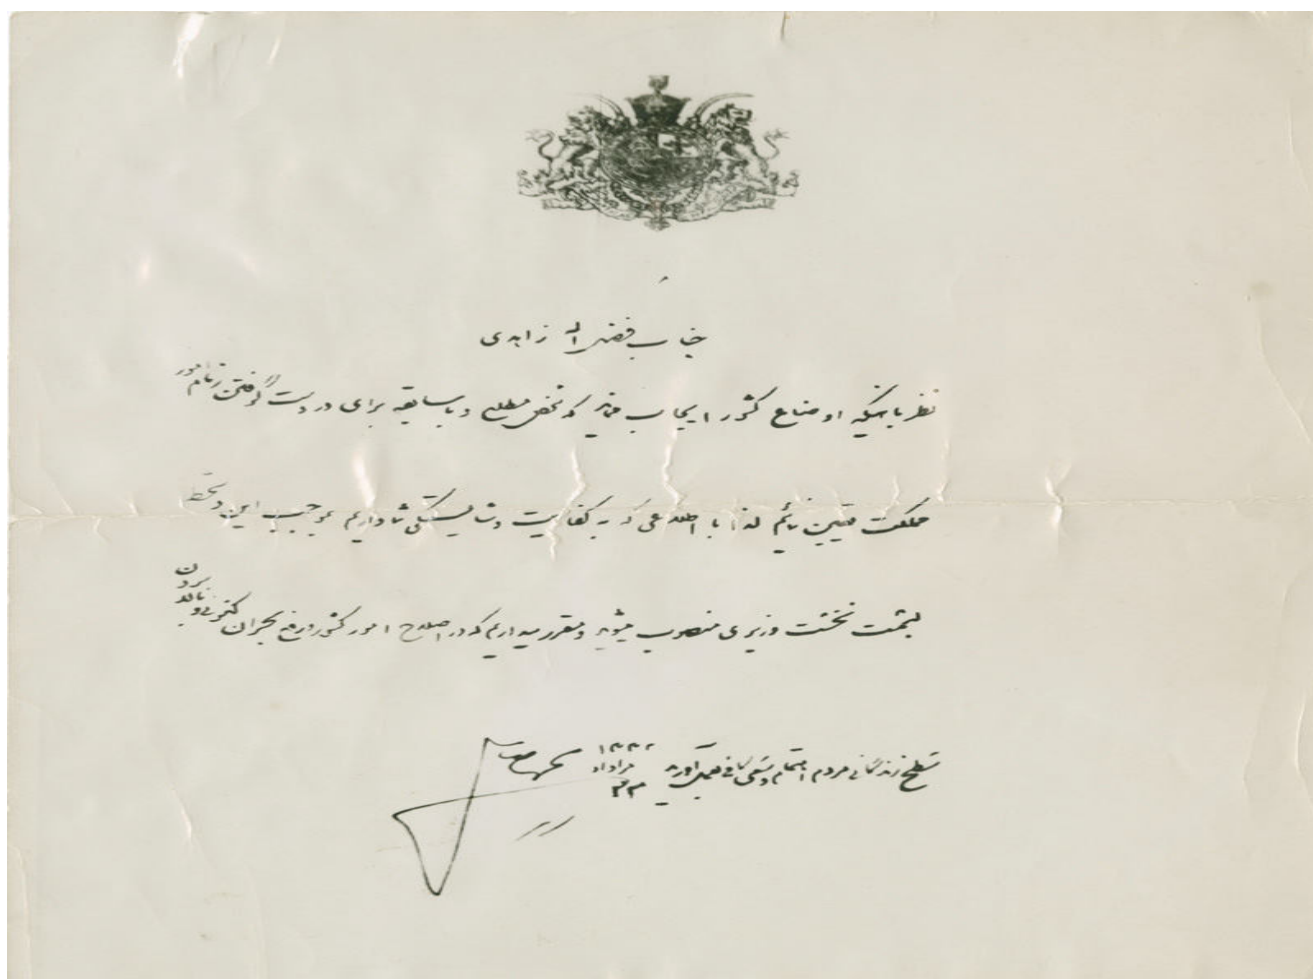 جناب فضل اله زاهدی
نظر باینکه اوضاع کشور ایجاب مینماید که شخص مطلع و با سابقه برای در دست گرفتن زمام امور
مملکت تعیین نمائیم لذا با اطلاعی که به کفایت و شایستگی شما داریم بموجب این دستخط
بسمت نخست وزیری منصوب میشوید و مقرر میداریم که در اصلاح امور کشور و رفع بحران کنونی و بالا بردن
سطح زندگانی مردم اهتمام و سعی کافی بعمل آورید
۱۳۳۲
مرداد